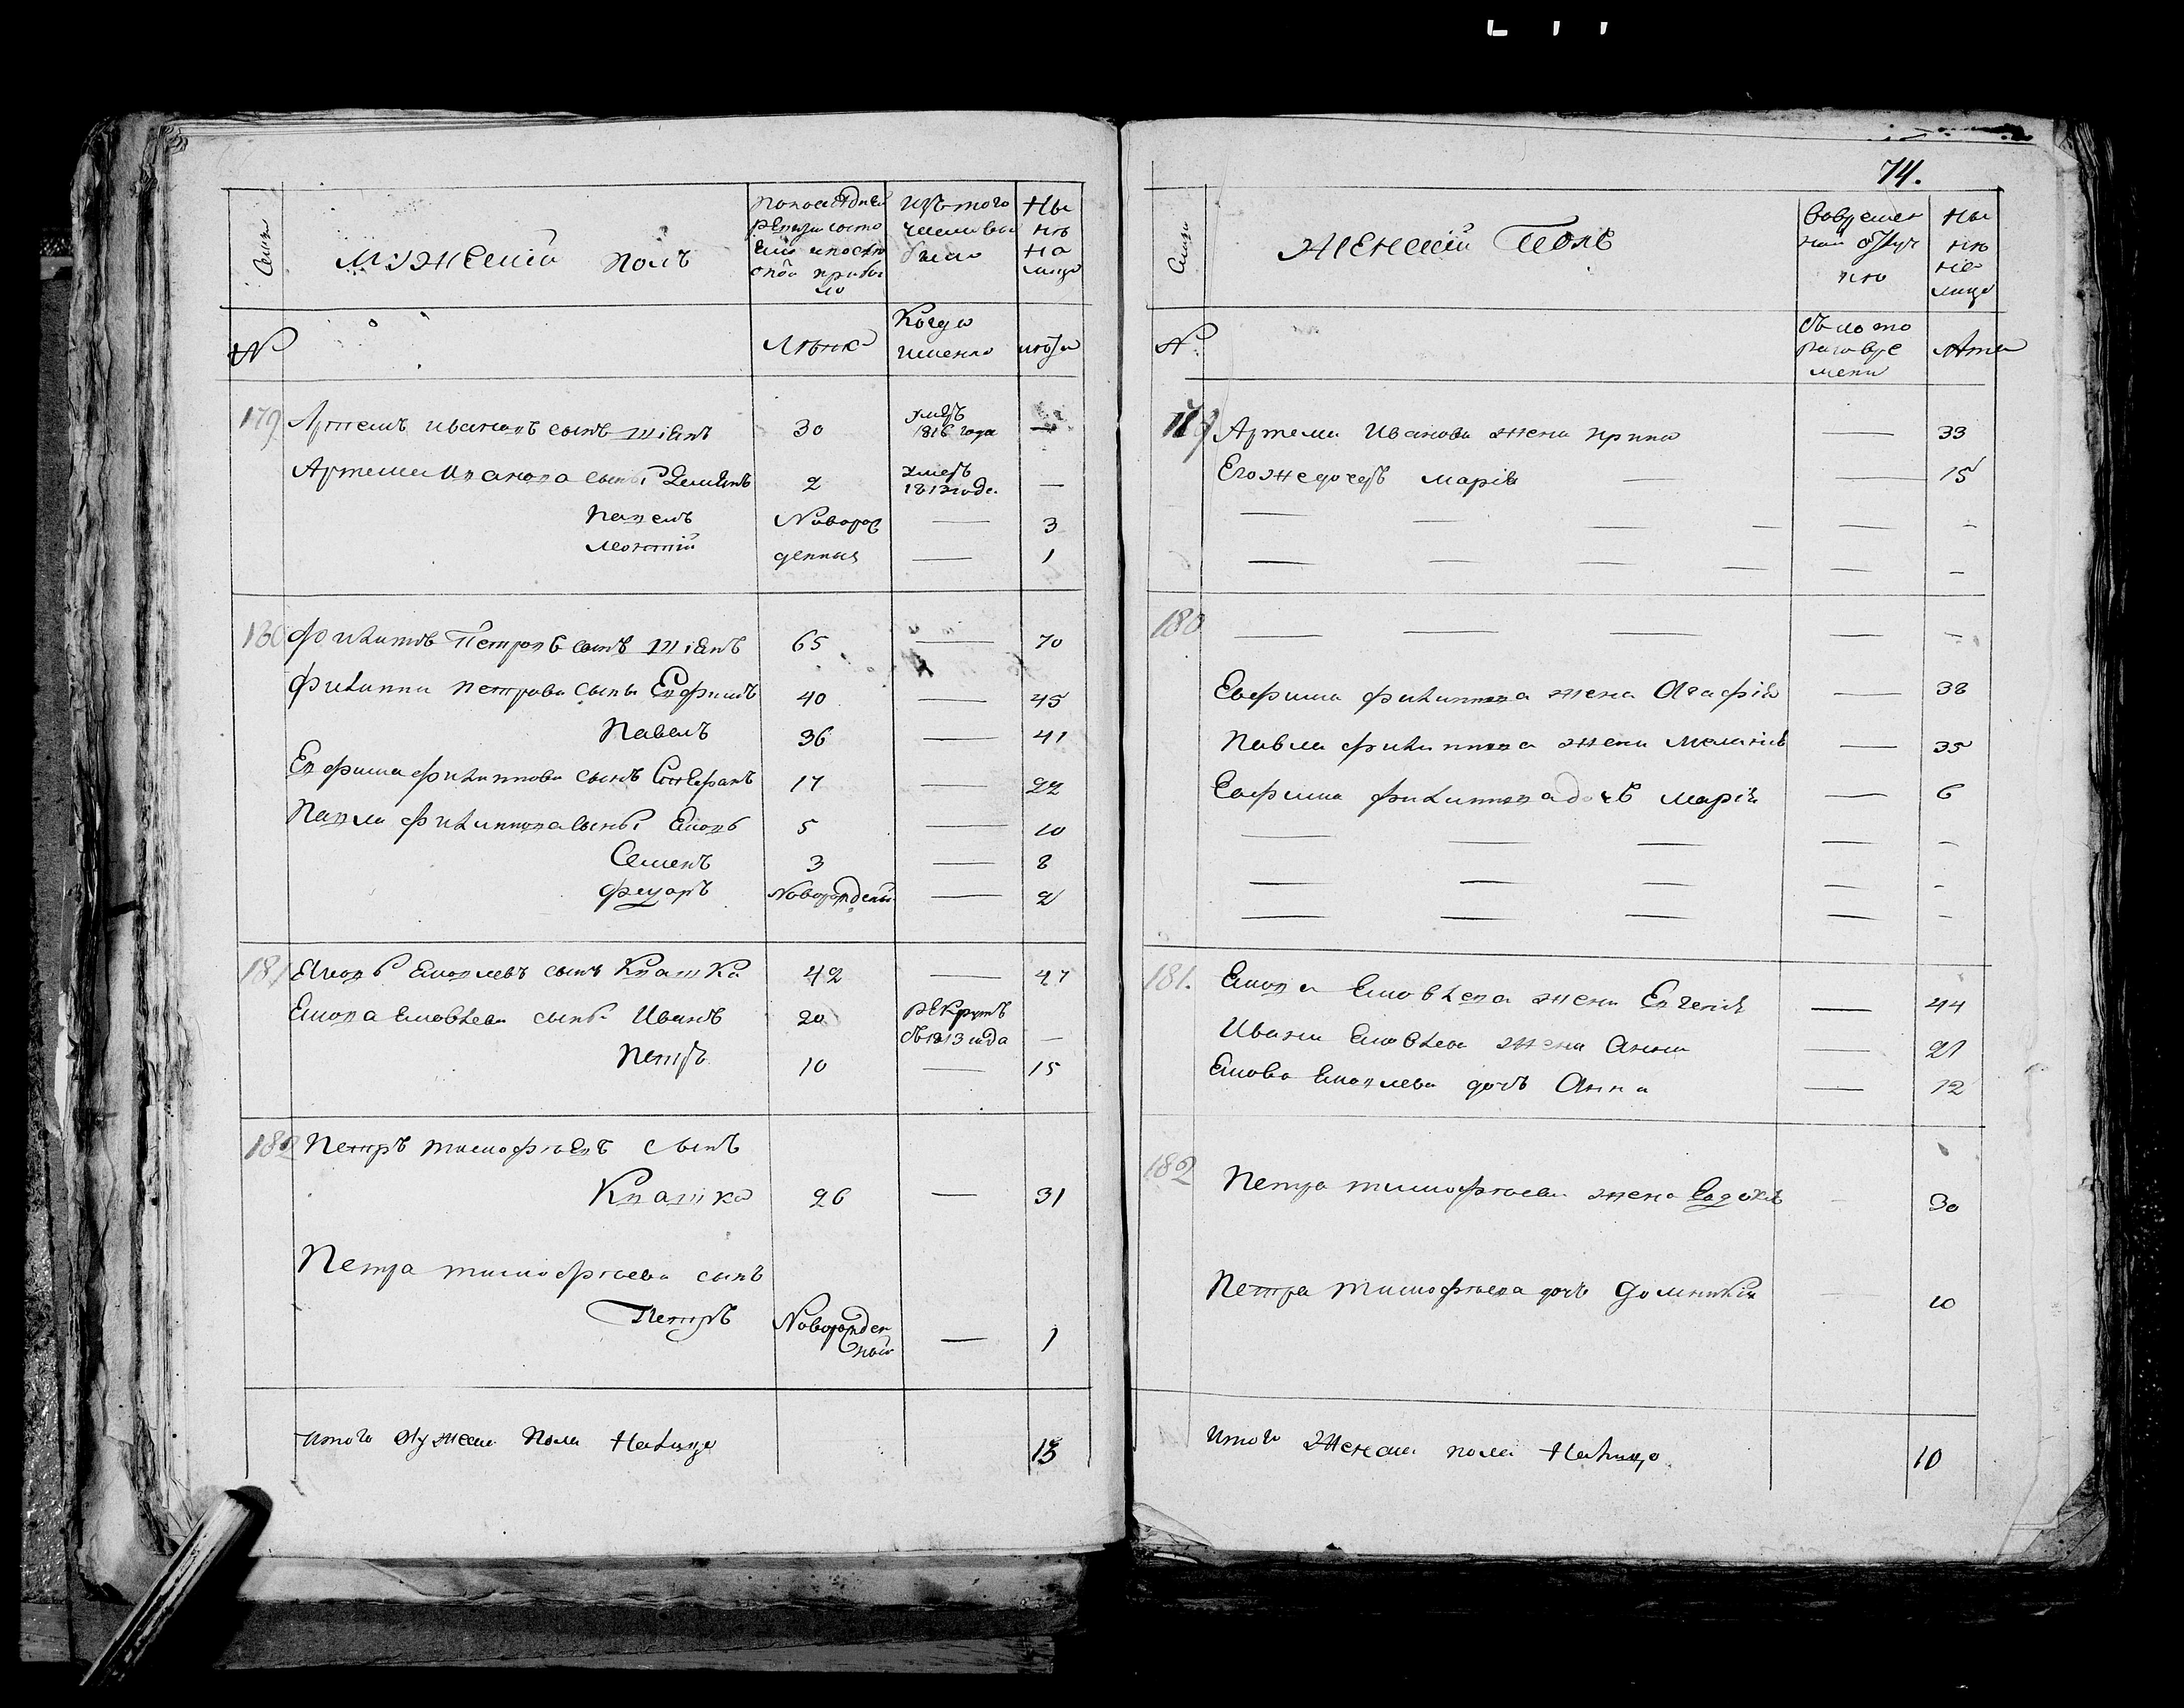 74.
Семьи
Мужеский полъ
По последней
ревизии состо
яло и после
оной прибы
ло
Изъ того
числа вы
было
Ны
не
на
лицо
№
Лета
Когда
именно
лета
179 Артемъ Ивановъ сынъ 30 умеръ 1816 года —
Артема Иванова сынъ Демянъ 2 умеръ 1813 года —
Павелъ Новорож — 3
Леонтий денныя — 1
180 Филиппъ Петровъ сынъ 65 — 70
Филиппа Петрова сынъ Ефимъ 40 — 45
Павелъ 36 — 41
Ефима Филиппова сынъ Стефанъ 17 — 22
Павла Филиппова сынъ Яковъ 5 — 10
Семенъ 3 — 8
Федоръ Новорожденый — 2
181 Яковъ Яковлевъ сынъ Квашка 42 — 47
Якова Яковлева сынъ Иванъ 20 рекрутъ
въ 1813 года —
Петръ 10 — 15
182 Петръ Тимофеевъ сынъ
Квашка 26 — 31
Петра Тимофеева сынъ
Петръ Новорожден
ный — 1
Итого мужеска пола налицо 13
Семьи
Женский Полъ
Во времен
ной отлуч
ке
Ны
не
на
лицо
№
Съ кото
раго вре
мени
Лета
179 Артема Иванова жена Ирина — 33
Его же дочерь Мария — 15
180 — — — — —
Ефима Филиппова жена Агафия — 38
Павла Филиппова жена Мелания — 35
Ефима Филиппова дочь Мария — 6
181. Якова Яковлева жена Евгения — 44
Ивана Яковлева жена Анна — 21
Якова Яковлева дочь Анна — 12
182 Петра Тимофеева жена Евдокия 30
Петра Тимофеева дочь Доминикия 10
Итого Женска пола налицо 10